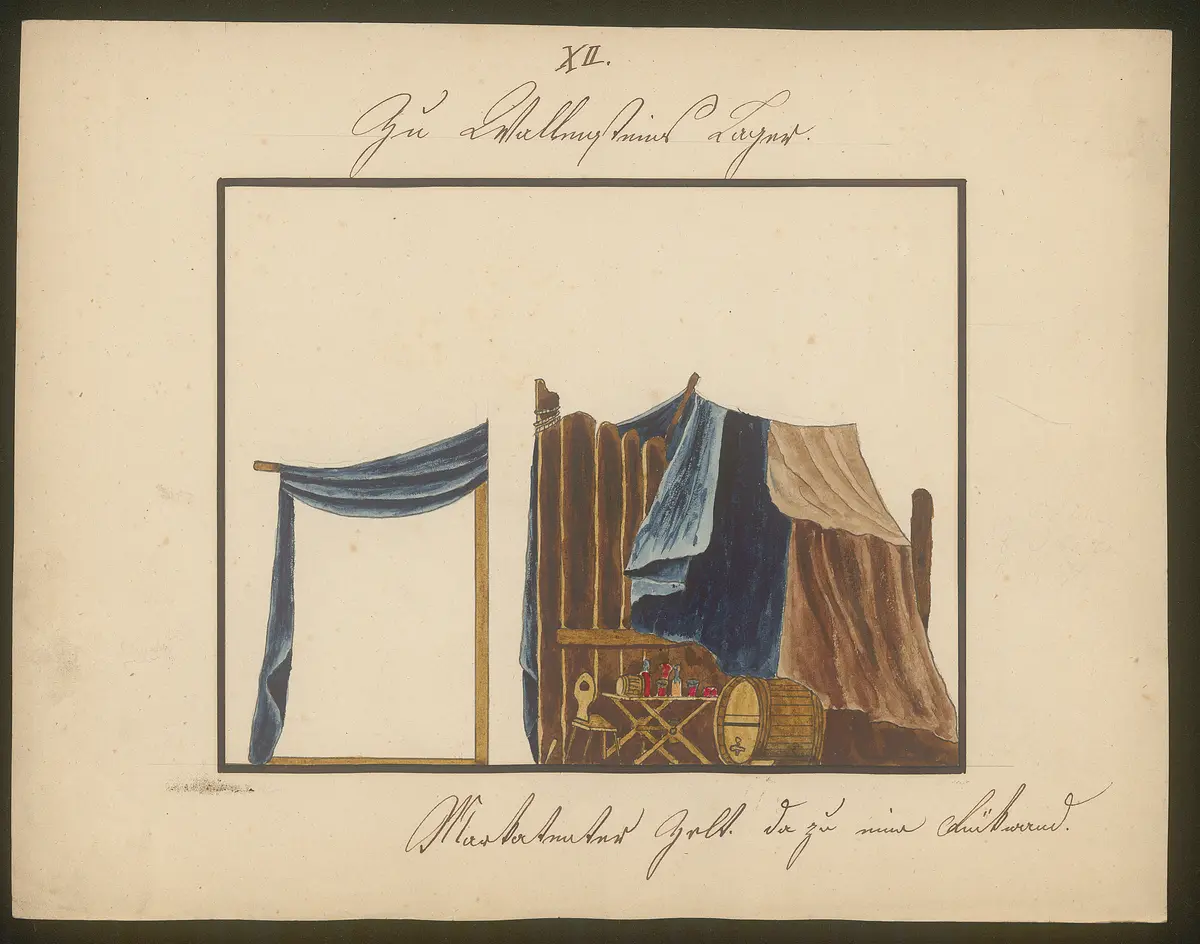 XII.
Zu Wallensteins Lager.
Markatenter Zelt. da zu eine Rückwand.